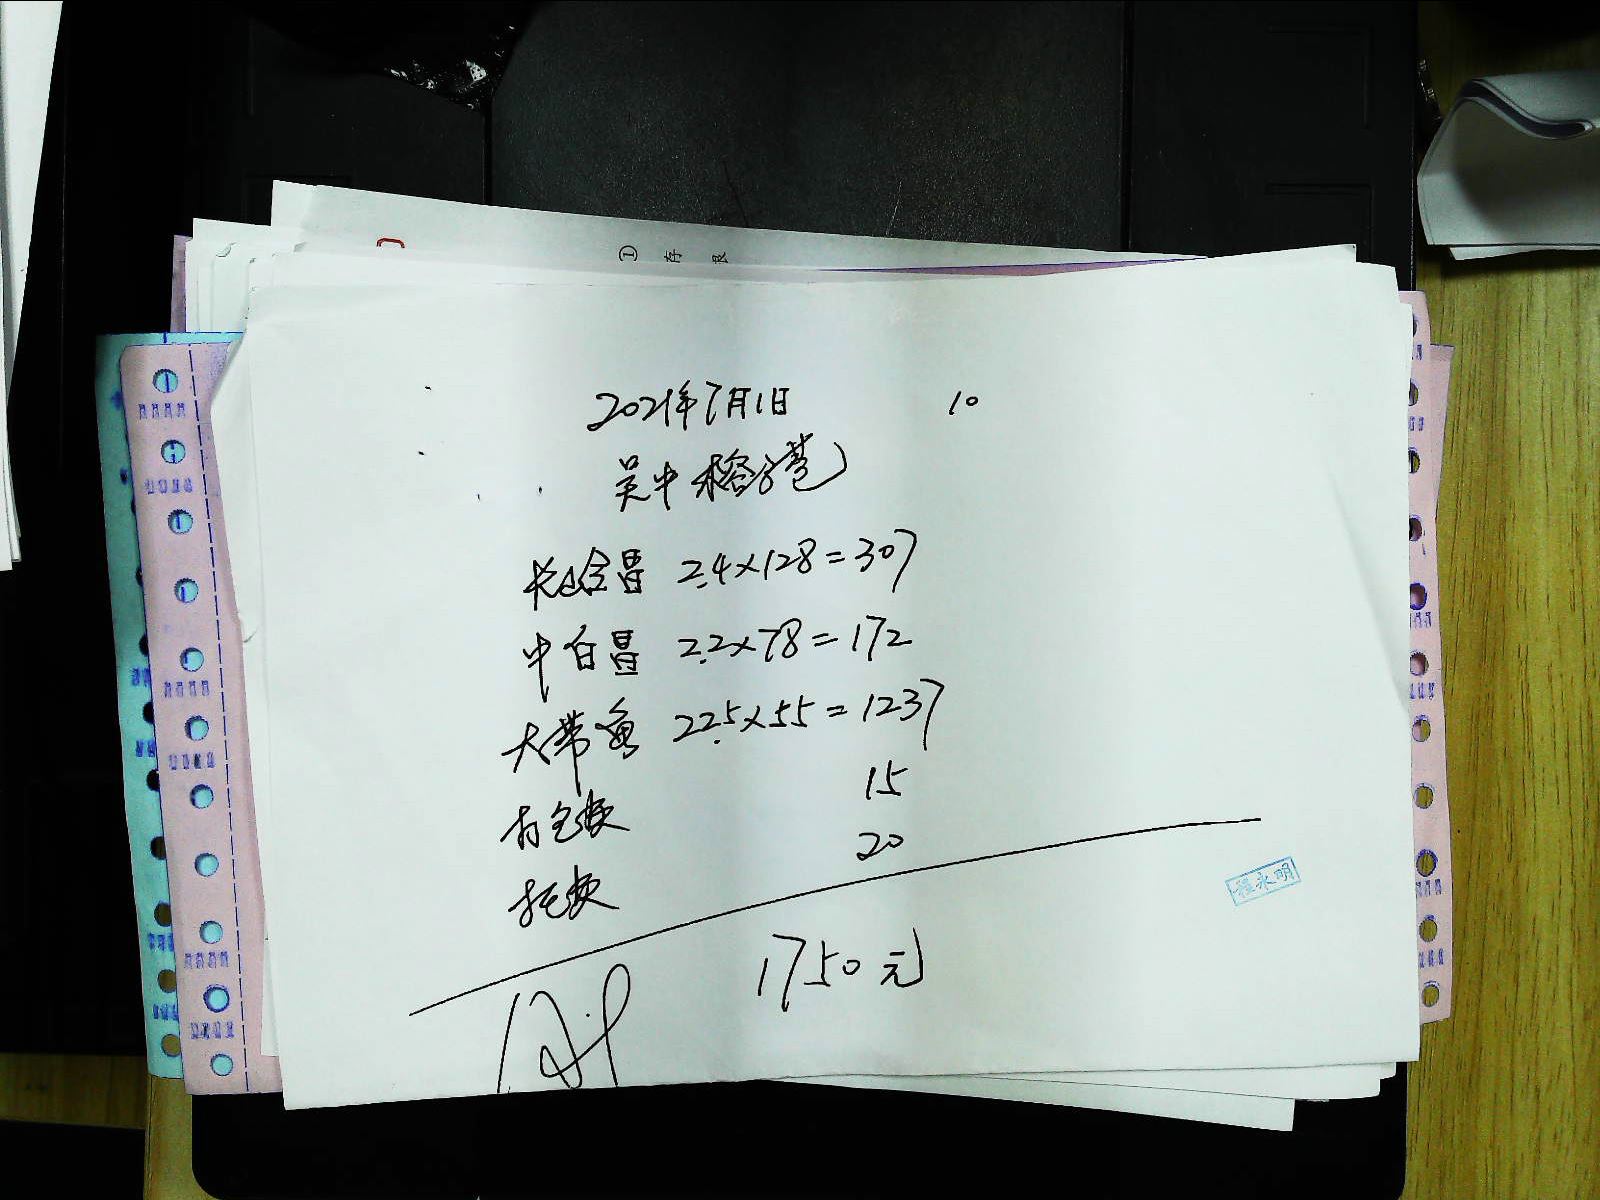 ① 存 根
2021年7月1日 10
吴中 榕子巷
长仓昌 2.4×128=307
中白昌 2.2×78=172
大带鱼 22.5×55=1237
打包费 15
20
托费
程永明
1750元